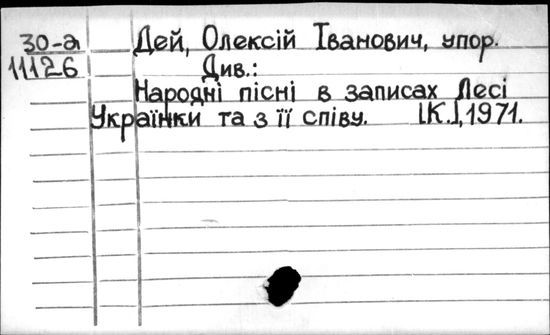 30-а Дей, Олексій Іванович, упор.
11126 Див.:
Народні пісні в записах Лесі
Українки та з її співу. [К.],1971.